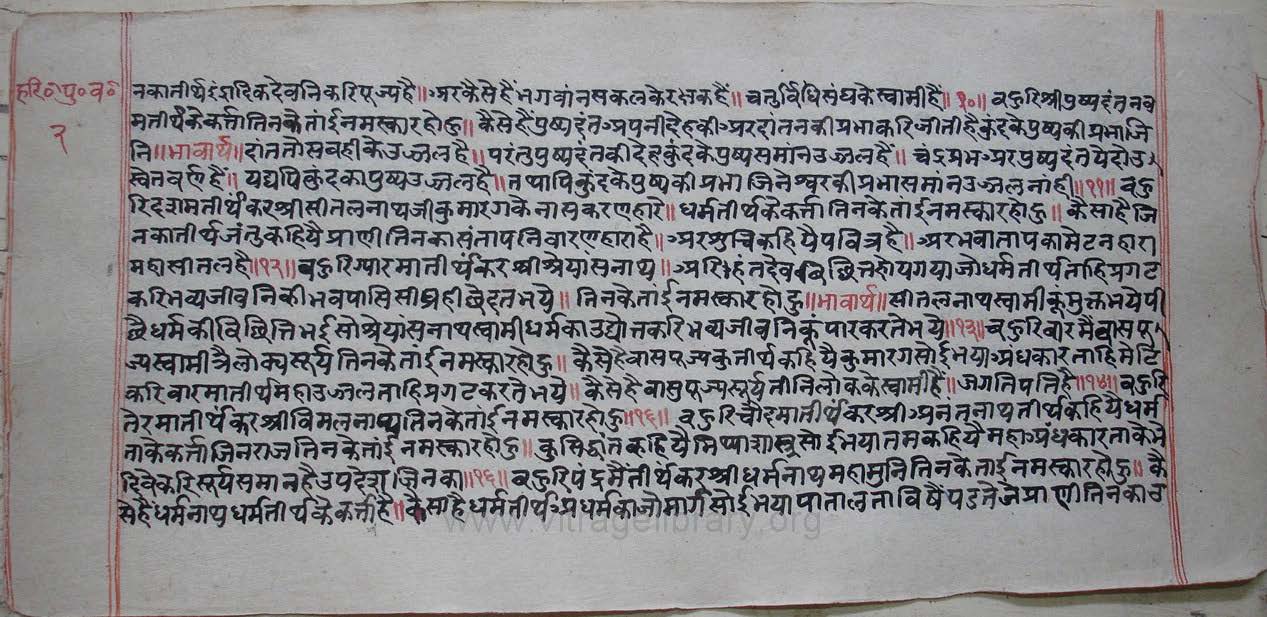 हरि० पु० व०
२
नकातीर्थइंद्रादिकदेवनिकरिपूज्यहै॥अरकैसेहैंभगवांनसकलकेरक्षकहैं॥चतुर्विधिसंघकेस्वामीहैं॥१०॥बहुरिश्रीपुष्पदंतनव
मतीर्थकेकर्त्तातिनकेतांईनमस्कारहोहु॥कैसेहैंपुष्पदंतअपनीदेहकीअरदांतनकीप्रभाकरिजीतीहैकुंदकेपुष्पकीप्रभाजि
नि॥भावार्थ॥दांततोसबहीकेउज्जलहै॥परंतुपुष्पदंतकीदेहकुंदकेपुष्पसमांनउज्जलहैं॥चंद्रप्रभअरपुष्पदंतयेदोउ
स्वेतवर्णहैं॥यद्यपिकुंदकापुष्पउज्जलहै॥तथापिकुंदकेपुष्पकीप्रभाजिनेश्वरकीप्रभासमांनउज्जलनांही॥११॥बहु
रिदशमतीर्थंकरश्रीसीतलनाथजीकुमारगकेनासकरणहारे॥धर्मतीर्थकेकर्त्तातिनकेतांईनमस्कारहोहु॥कैसाहैजि
नकातीर्थजंतुकहियैप्राणीतिनकासंतापनिवारणहाराहै॥अरशुचिकहियैपवित्रहै॥अरभवातापकामेटनहारा
महासीतलहै॥१२॥बहुरिग्यारमातीर्थंकरश्रीश्रेयांसनाथ॥अरिहंतदेवविछित्तहोयगयाजोधर्मतीर्थताहिप्रगट
करिभव्यजीवनिकीभवपासिसीघ्रहीछेदतभये॥तिनकेतांईनमस्कारहोहु॥भावार्थ॥सीतलनाथस्वामीकूंमुक्तभयेपी
छैधर्मकीविछित्तिभईसोश्रेयांसनाथस्वामीधर्मकाउद्योतकरिभव्यजीवनिकूंपारकरतेभये॥१३॥बहुरिबारमैंवासपू
ज्यस्वामीत्रैलोक्यसूर्यतिनकेतांईनमस्कारहोहु॥कैसेहैवासपूज्यकुतीर्थकहियैकुमारगसोईभयाअंधकारताहिमेटि
करिबारमातीर्थमहाउज्जलताहिप्रगटकरतेभये॥कैसेहैवासुपूज्यसूर्यतीनिलोककेस्वामीहैं॥जगतिपतिहै॥१४॥बहुरि
तेरमातीर्थंकरश्रीविमलनाथतिनकेतांईनमस्कारहोहु॥१५॥बहुरिचौदमातीर्थंकरश्रीअनंतनाथतीर्थकहियैधर्म
ताकेकर्त्ताजिनराजतिनकेतांईनमस्कारहोहु॥कुसिद्धांतकहियैमिथ्याशास्त्रसोईभयातमकहियैमहाअंधकारताकेभे
दिवेकरिसूर्यसमानहैउपदेशजिनका॥१६॥बहुरिपंद्रमैतीर्थंकरश्रीधर्मनाथमहामुनितिनकेतांईनमस्कारहोहु॥कै
सेहैंधर्मनाथधर्मतीर्थकेकर्त्ताहै॥कैसाहैधर्मतीर्थअधर्मकाजोमार्गसोईभयापातालताविषैंपडतेजेप्राणीतिनकाउ
www.vitragelibrary.org